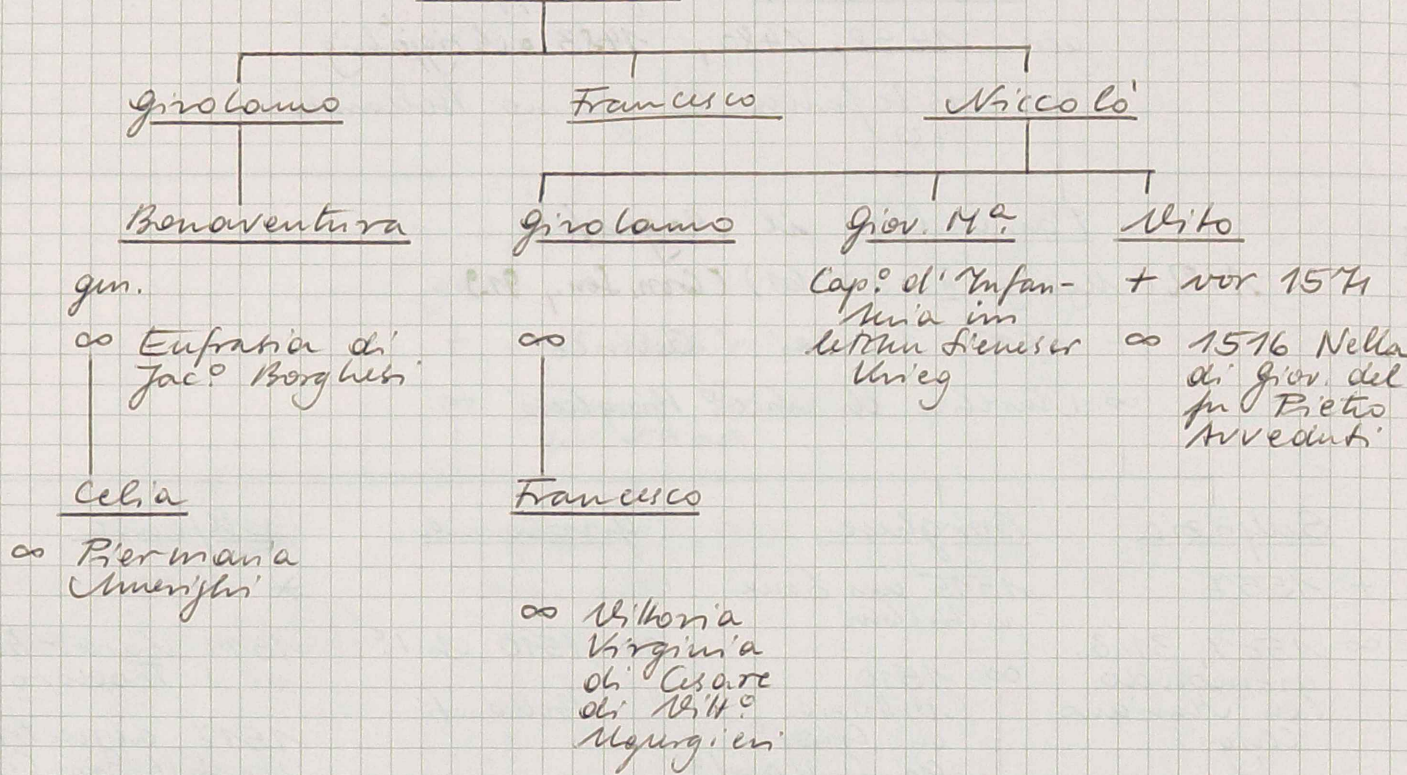 Girolamo
Francesco
Niccolò
Bonaventura
Girolamo
Giov. Mª.
Vito
gen.
∞ Eufrasia di
Jac.º Borghesi
∞
Cap.º d'Infan-
teria im
letzten Sieneser
Krieg
+ vor 1571
∞ 1516 Nella
di Giov. del
fu Pietro
Avveduti
Celia
∞ Piermaria
Amerighi
Francesco
∞ Vittoria
Virginia
di Cesare
di Vitt.º
Ugurgieri